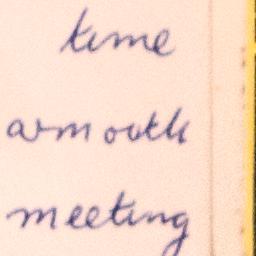 time
a smooth
meeting